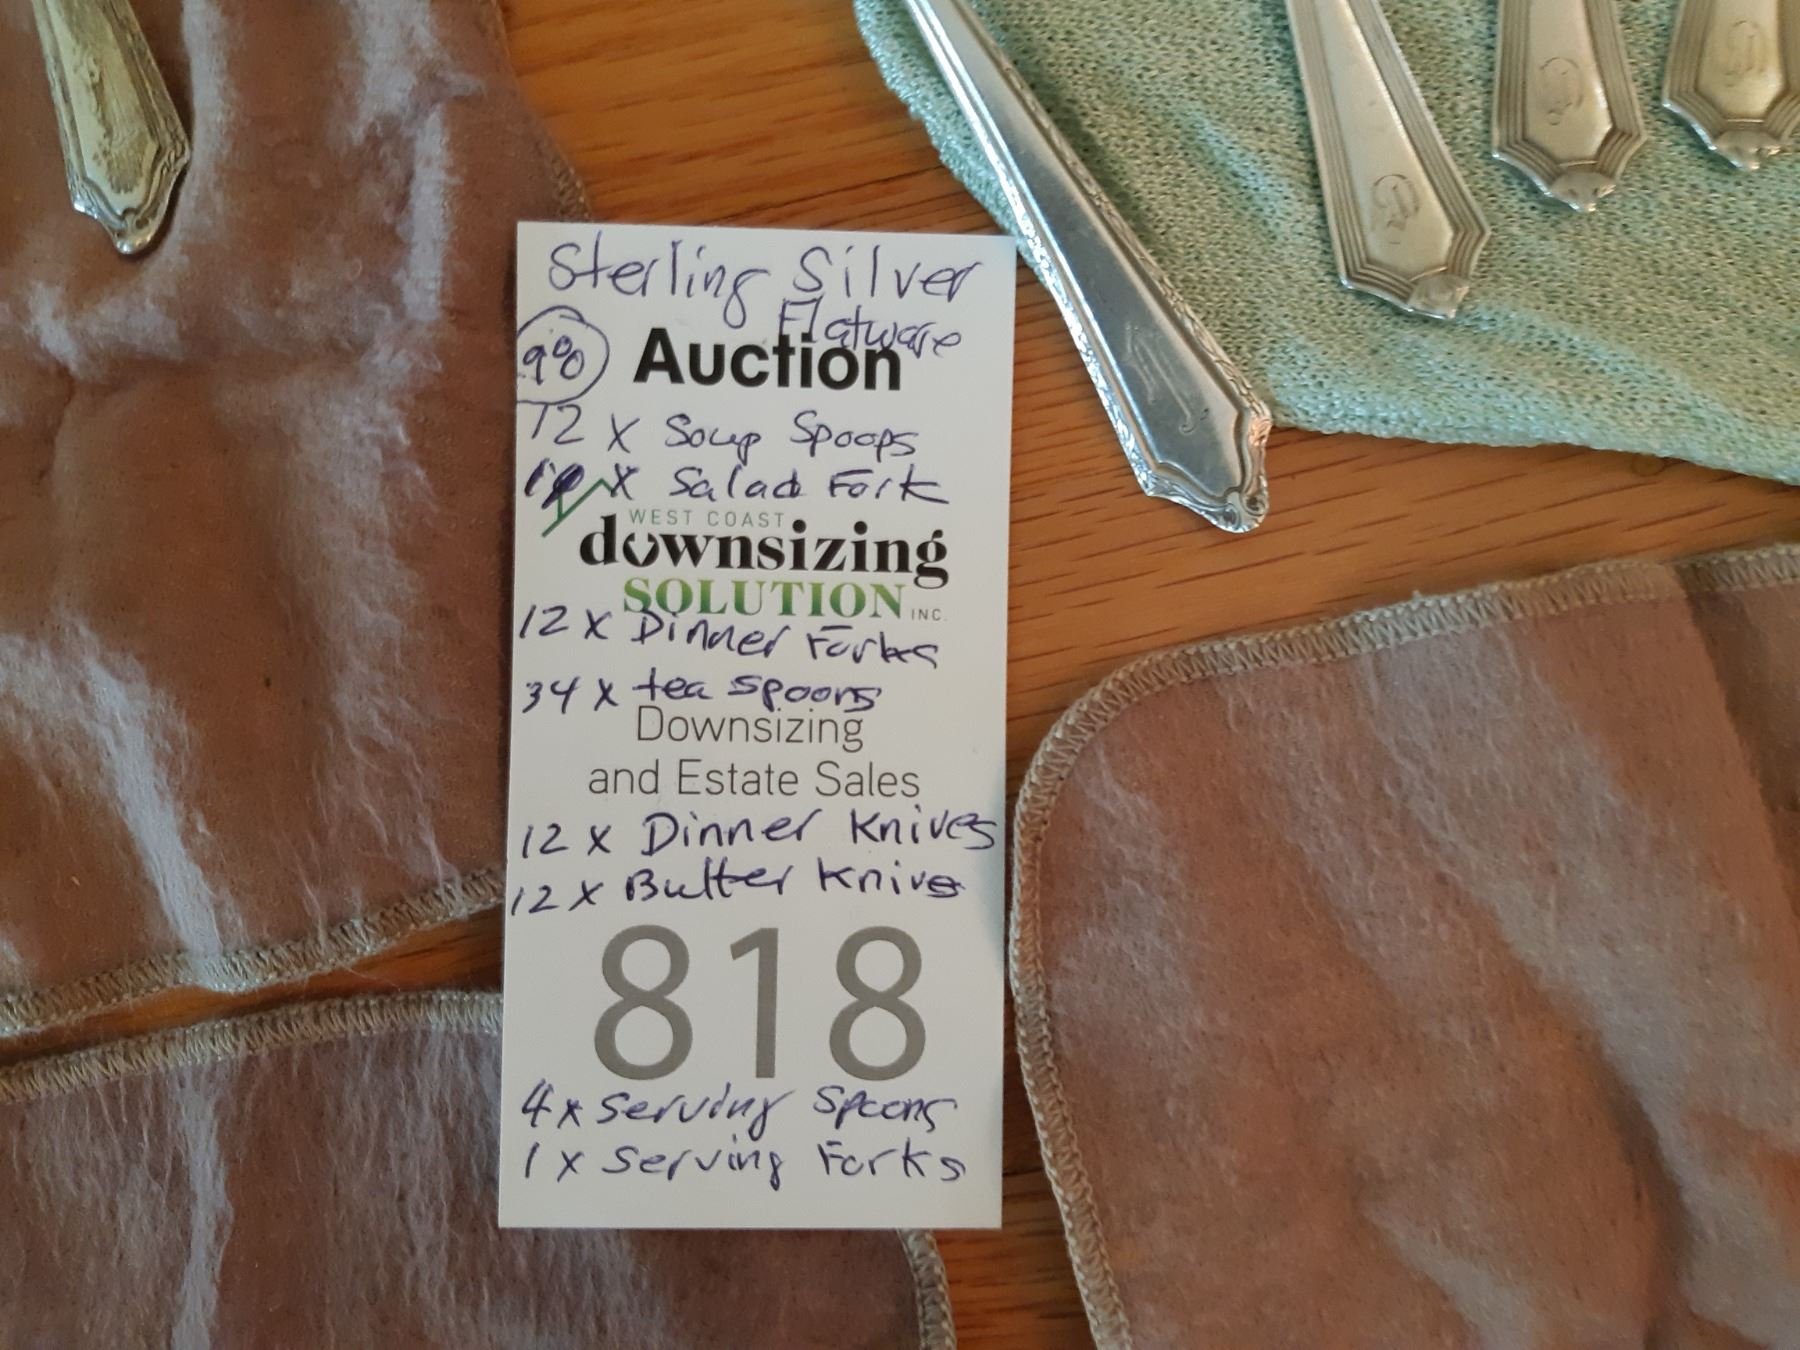 Sterling Silver
Flatware
98
Auction
12 x Soup Spoons
x Salad Fork
WEST COAST
downsizing
SOLUTION INC.
12 x Dinner Forks
34 x tea spoons
Downsizing
and Estate Sales
12 x Dinner Knives
12 x Butter Knives
818
4 x Serving Spoons
1 x Serving Forks